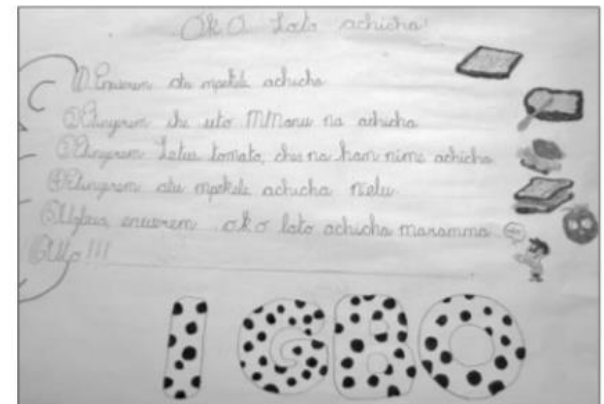 Oko Loto achicha!
① Enwerem otu mpekele achicha
② Etinyerem ihe uto MManu na achicha
③ Etinyerem Letus tomato, chis na ham nime achicha
④ Etinyerem otu mpekele achicha nelu
⑤ Ugbua, enwerem oko loto achicha maramma
⑥ Ulo!!!
IGBO